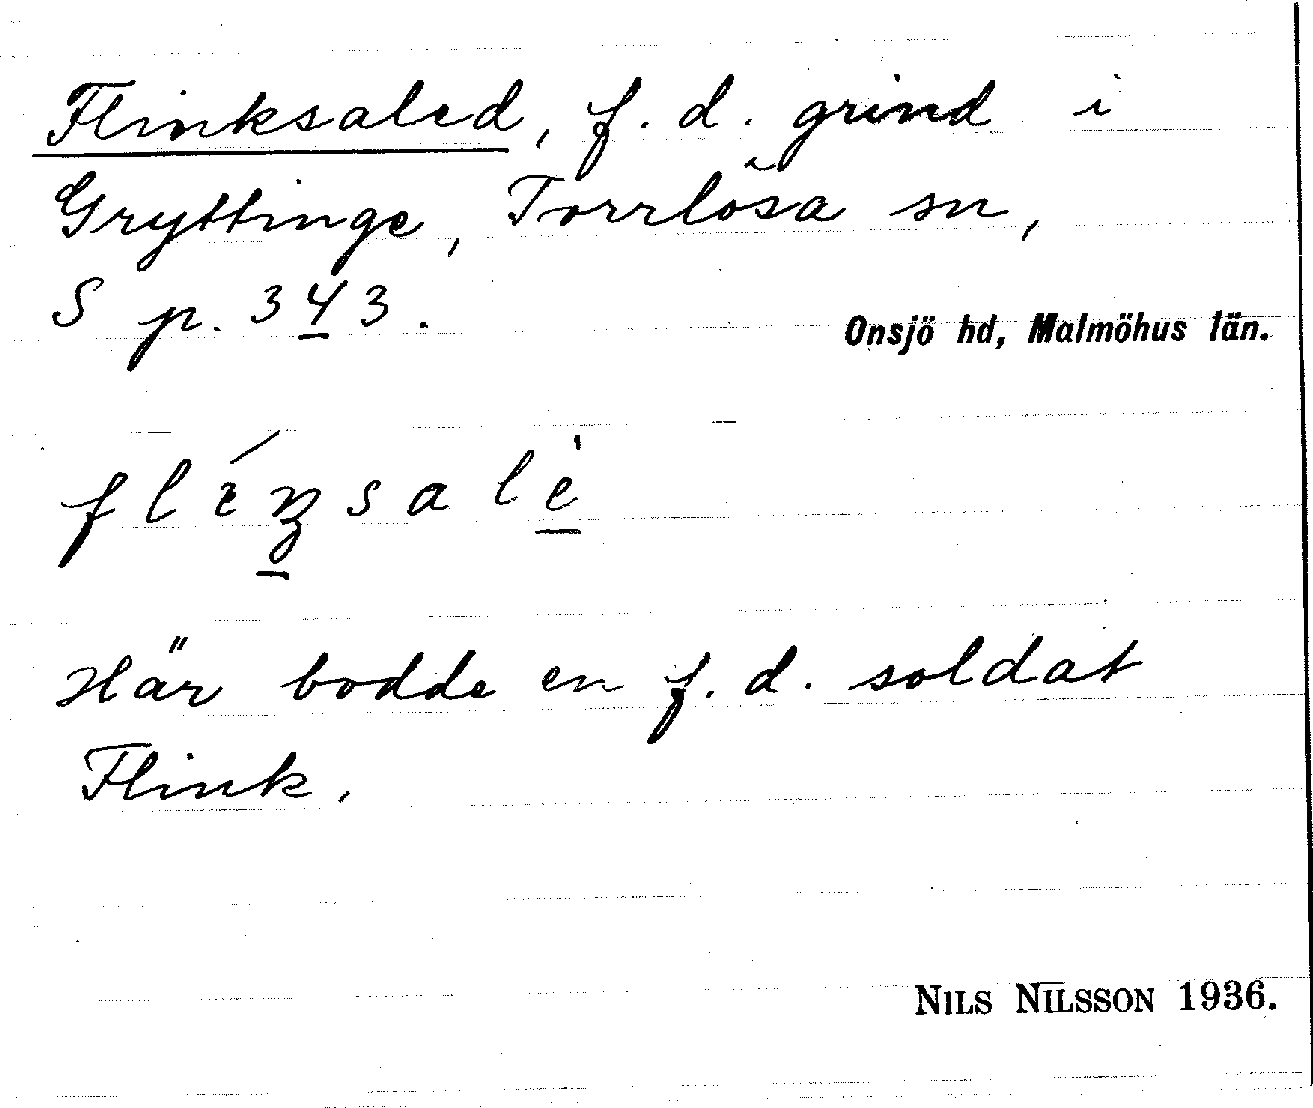 Flinksaled, f. d. grind i
Gryttinge, Torrlösa sn,
S p. 343.
Onsjö hd, Malmöhus län.
Här bodde en f. d. soldat
Flink.
NILS NILSSON 1936.